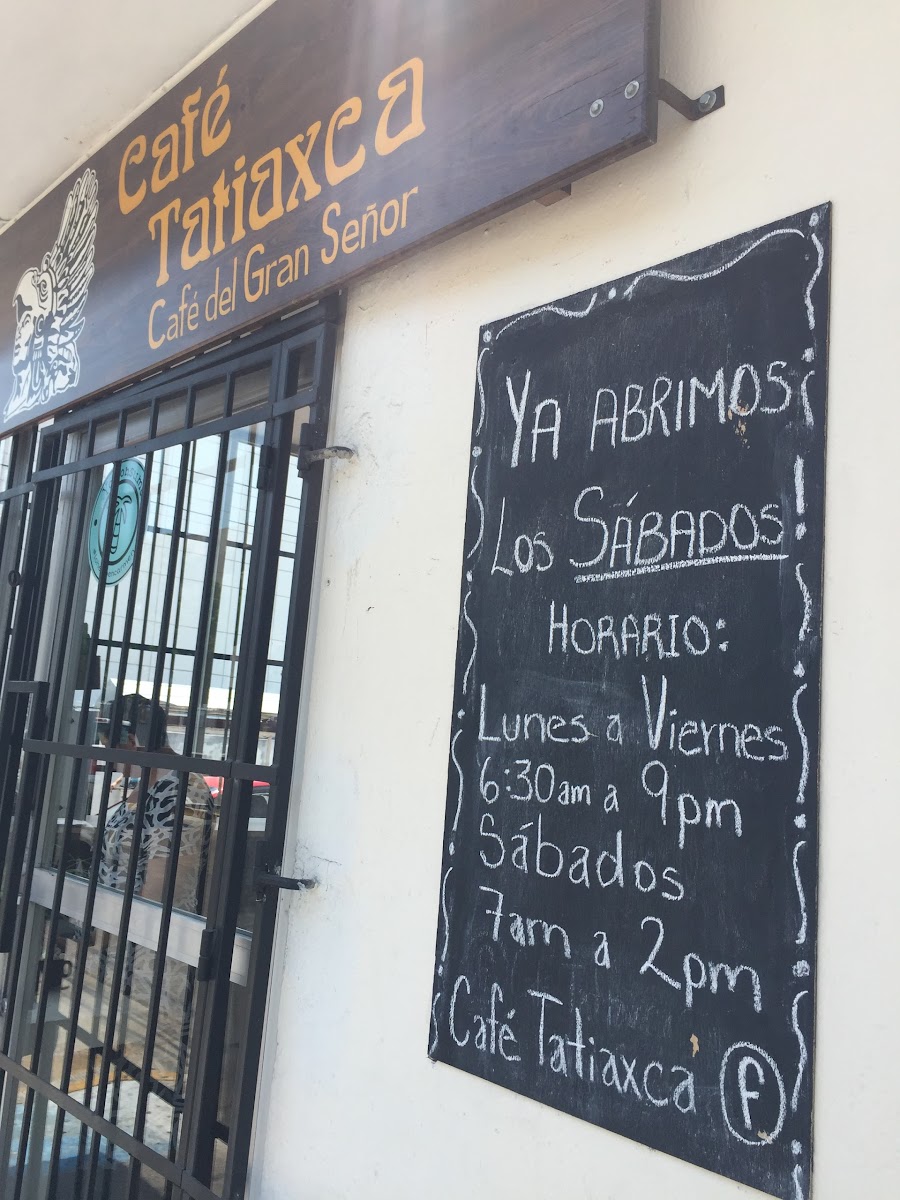 Café
Tatiaxca
Café del Gran Señor
YA ABRIMOS
LOS SÁBADOS!
HORARIO:
Lunes a Viernes
6:30am a 9pm
Sábados
7am a 2pm
Café Tatiaxca f